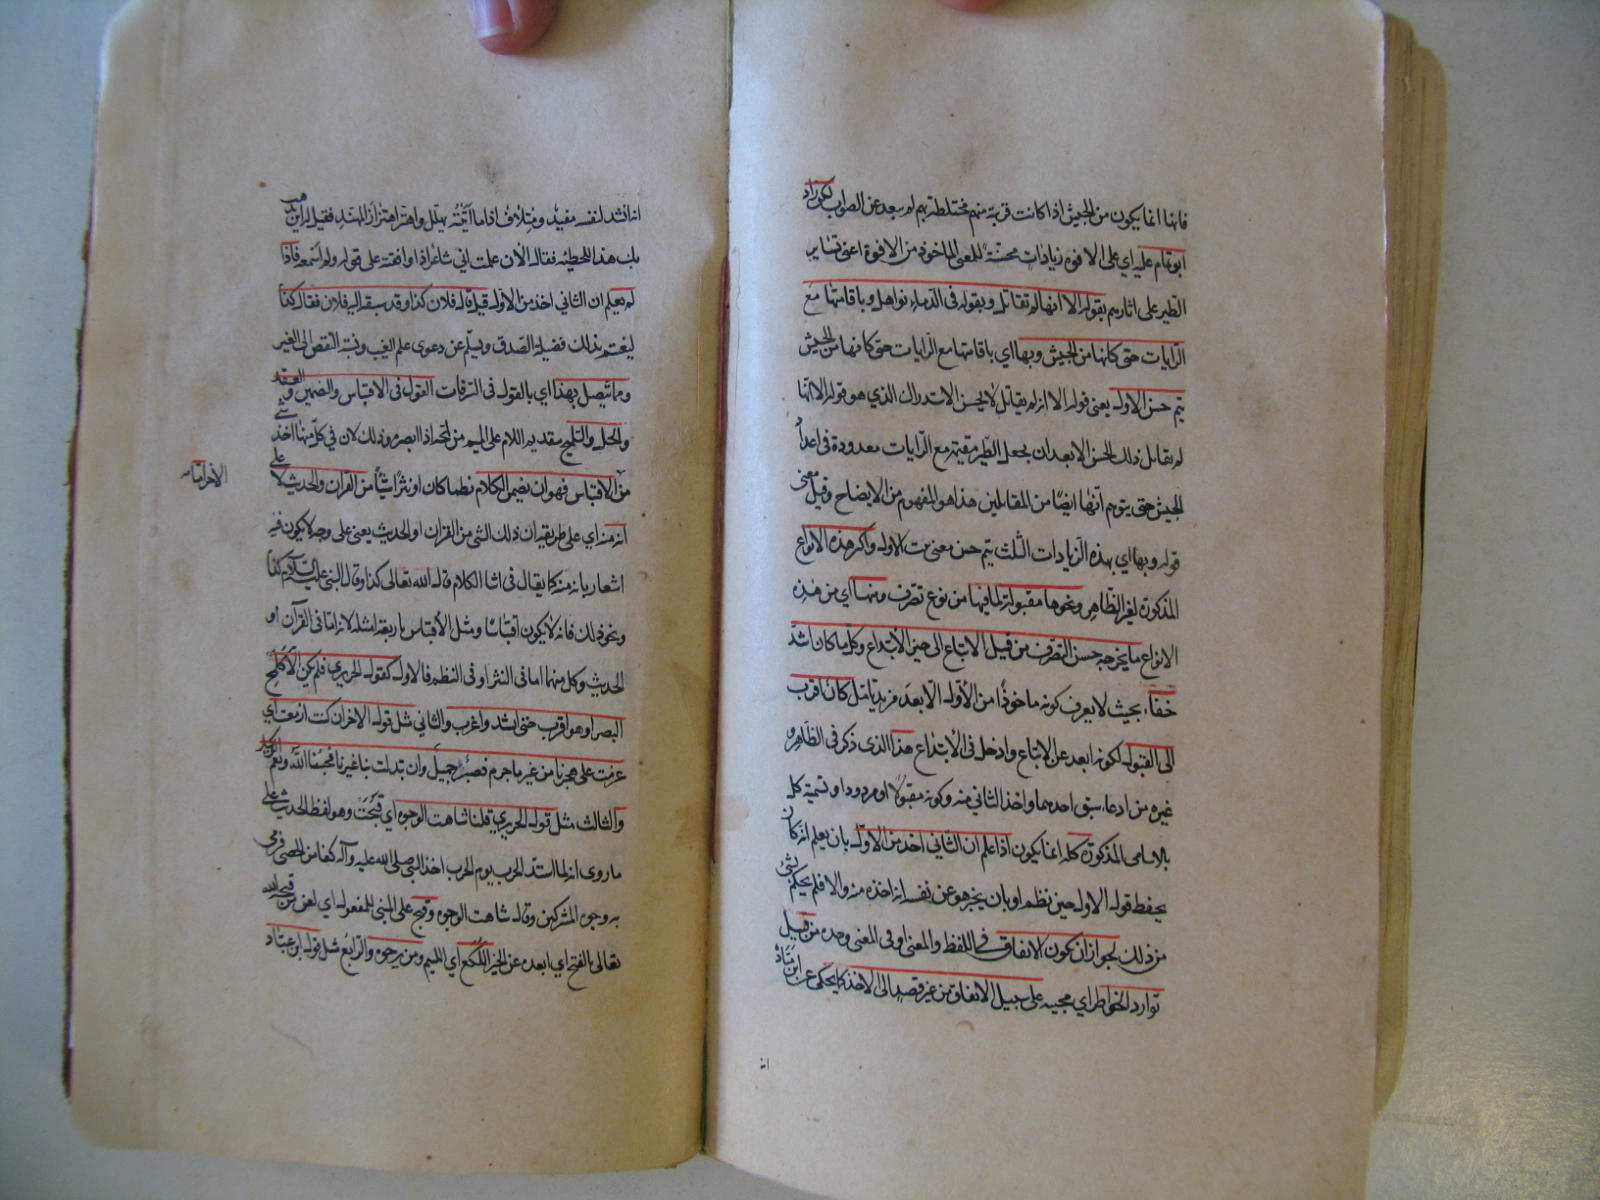 فانها انما يكون من الجيش اذا كانت قريبة منهم مختلطة بهم لم يبعد عن الصواب لكن زاد
ابو تمام عليه اي على الافوه زيادات محسنة للمعنى الماخوذ من الافوه اعنى تساير
الطير على اثارهم بقوله الا انها لم تقاتل وبقوله فى الدماء نواهل وباقامتها مع
الرايات حتى كانها من الجيش وبها اي باقامتها مع الرايات حتى كانها من الجيش
يتم حسن الاول يعنى قوله الا انها لم يقاتل لانه لا يحسن الاستدراك الذي هو قوله الا انها
لم يقاتل ذلك الحسن الا بعد ان يجعل الطير مقيمة مع الرايات معدودة فى اعداد
الجيش حتى يتوهم انها ايضا من المقاتلين هذا هو المفهوم من الايضاح وقيل معنى
قوله وبها اي بهذه الزيادات الثلث يتم حسن معنى بيت الاول واكثر هذه الانواع
المذكورة لغير الظاهر ونحوها مقبولة لما فيها من نوع تصرف ومنها اي من هذه
الانواع ما يخرجه حسن التصرف من قبيل الاتباع الى حيز الابتداع وكل ما كان اشد
خفاء بحيث لا يعرف كونه ماخوذا من الاول الا بعد مزيد تامل كان اقرب
الى القبول لكونه ابعد عن الاتباع وادخل فى الابتداع هذا الذى ذكر فى الظاهر و
غيره من ادعاء سبق احدهما واخذ الثانى منه وكونه مقبولا او مردودا وتسمية كل
بالاسامى المذكورة كله انما يكون اذا علم ان الثانى اخذ من الاول بان يعلم انه كان
يحفظ قول الاول حين نظم او بان يخبر هو عن نفسه انه اخذه منه والا فلم يحكم بشئ
من ذلك لجواز ان يكون الاتفاق فى اللفظ والمعنى او فى المعنى وحده من قبيل
توارد الخواطر اي مجيئه على سبيل الاتفاق من غير قصد الى الاخذ كما يحكى عن ابن ميادة
انه
انه انشد لنفسه مفيد ومتلاف اذا ما اتيته تهلل واهتز اهتزاز المهند فقيل له اين يذهب
بك هذا للحطيئة فقال الان علمت انى شاعر اذا وافقته على قوله ولم اسمعه فاذا
لم يعلم ان الثانى اخذ من الاول قيل قال فلان كذا وقد سبقه اليه فلان فقال كذا
ليغتنم بذلك فضيلة الصدق ويسلم عن دعوى علم الغيب ونسبة النقص الى الغير
ومما يتصل بهذا اي بالقول فى السرقات القول فى الاقتباس والتضمين والعقد
والحل والتلميح بتقديم اللام على الميم من لمحه اذا ابصره وذلك لان فى كل منها اخذ شئ
من الاقتباس فهو ان يضمن الكلام نظما كان او نثرا شيئا من القران والحديث لا على
انه منه اي على طريقة ان ذلك الشئ من القران او الحديث يعنى على وجه لا يكون فيه
اشعار بانه منه كما يقال فى اثناء الكلام قال الله تعالى كذا وقال النبى عليه السلام كذا
ونحو ذلك فانه لا يكون اقتباسا ومثل الاقتباس باربعة امثلة لانه اما فى القرآن او
الحديث وكل منهما اما فى النثر او فى النظم فالاول كقول الحريرى فلم يكن الا كلمح
البصر او هو اقرب حتى انشد واغرب والثانى مثل قول الاخر ان كنت ازمعت اي
عزمت على هجرنا من غير ما جرم فصبر جميل وان تبدلت بنا غيرنا فحسبنا الله ونعم الوكيل
والثالث مثل قول الحريرى قلنا شاهت الوجوه اي قبحت وهو لفظ الحديث على
ما روى انه لما اشتد الحرب يوم الحرب اخذ النبى صلى الله عليه وآله كفا من الحصى فرمى
به وجوه المشركين وقال شاهت الوجوه وقبح على المبنى للمفعول اي لعن من قبحه الله
تعالى بالفتح اي ابعده عن الخير اللكع اي اللئيم ومن يرجوه والرابع مثل قول ابن عباد